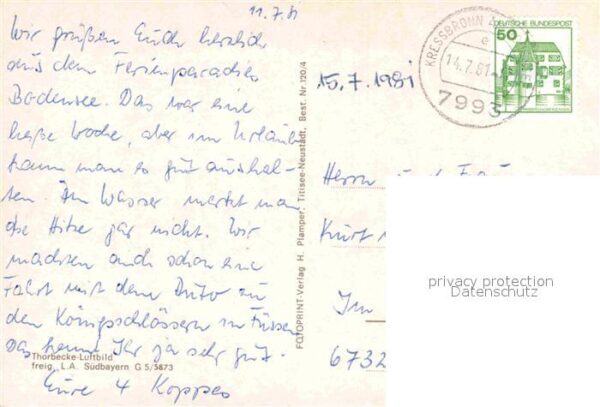 11.7.81
Wir grüßen Euch herzlich
aus dem Ferienparadies
Bodensee. Das war eine
heiße Woche, aber im Urlaub
kann man es gut aushal-
ten. Im Wasser merkt man
die Hitze gar nicht. Wir
machten auch schon eine
Fahrt mit dem Auto zu
den Königsschlössern in Füssen
Das kennt Ihr ja sehr gut.
Eure 4
Thorbecke-Luftbild
freig. L.A. Südbayern G 5/5873
FOTOPRINT-Verlag H. Plamper, Titisee-Neustadt, Best. Nr. 120/4
15.7.1981
KRESSBRONN
e
14.7.81
7993
DEUTSCHE BUNDESPOST
50
Herrn u.
Kurt
Im
6732
privacy protection
Datenschutz